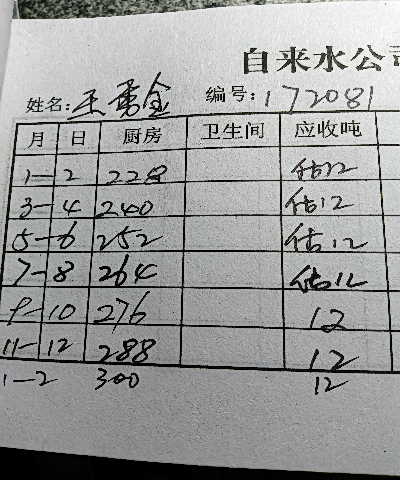 自来水公司
姓名: 王勇金 编号: 172081
月 日 厨房 卫生间 应收吨
1-2 228 估12
3-4 240 估12
5-6 252 估12
7-8 264 估12
9-10 276 12
11-12 288 12
1-2 300 12